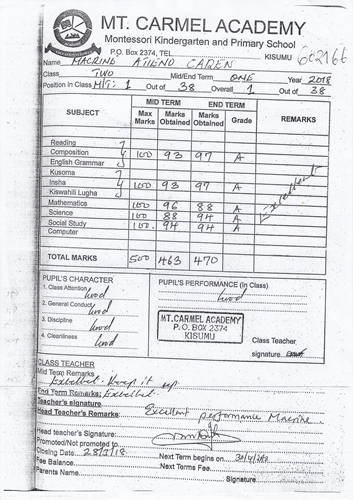 MT. CARMEL ACADEMY
Montessori Kindergarten and Primary School
P.O. Box 2374, TEL KISUMU
Name MACRINE ATIENO CAREN
Class TWO Mid/End Term ONE Year 2018
Position in Class M/T: 1 Out of 38 Overall 1 Out of 38
SUBJECT MID TERM END TERM REMARKS
Max Marks Marks Obtained Marks Obtained Grade
Reading
Composition 100 93 97 A
English Grammar
Kusoma
Insha 100 93 97 A
Kiswahili Lugha
Mathematics 100 96 88 A
Science 100 88 94 A
Social Study 100 94 94 A
Computer
Excellent
TOTAL MARKS 500 463 470
PUPIL'S CHARACTER
1. Class Attention Good
2. General Conduct Good
3. Discipline Good
4. Cleanliness Good
PUPIL'S PERFORMANCE (In Class)
Good
MT. CARMEL ACADEMY
P. O. BOX 2374
KISUMU
Class Teacher
signature
CLASS TEACHER
Mid Term Remarks
Excellent. Keep it up.
End Term Remarks: Excellent.
Teacher's signature
Head Teacher's Remarks: Excellent performance Macrine.
Head teacher's Signature:
Promoted/Not promoted to
Closing Date Next Term begins on
Fee Balance Next Terms Fee
Parents Name Signature